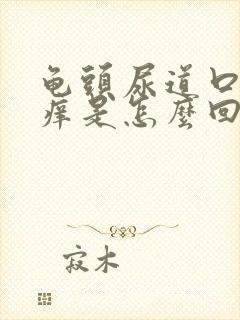 龟頭尿道口
痒是怎麼回
寂木